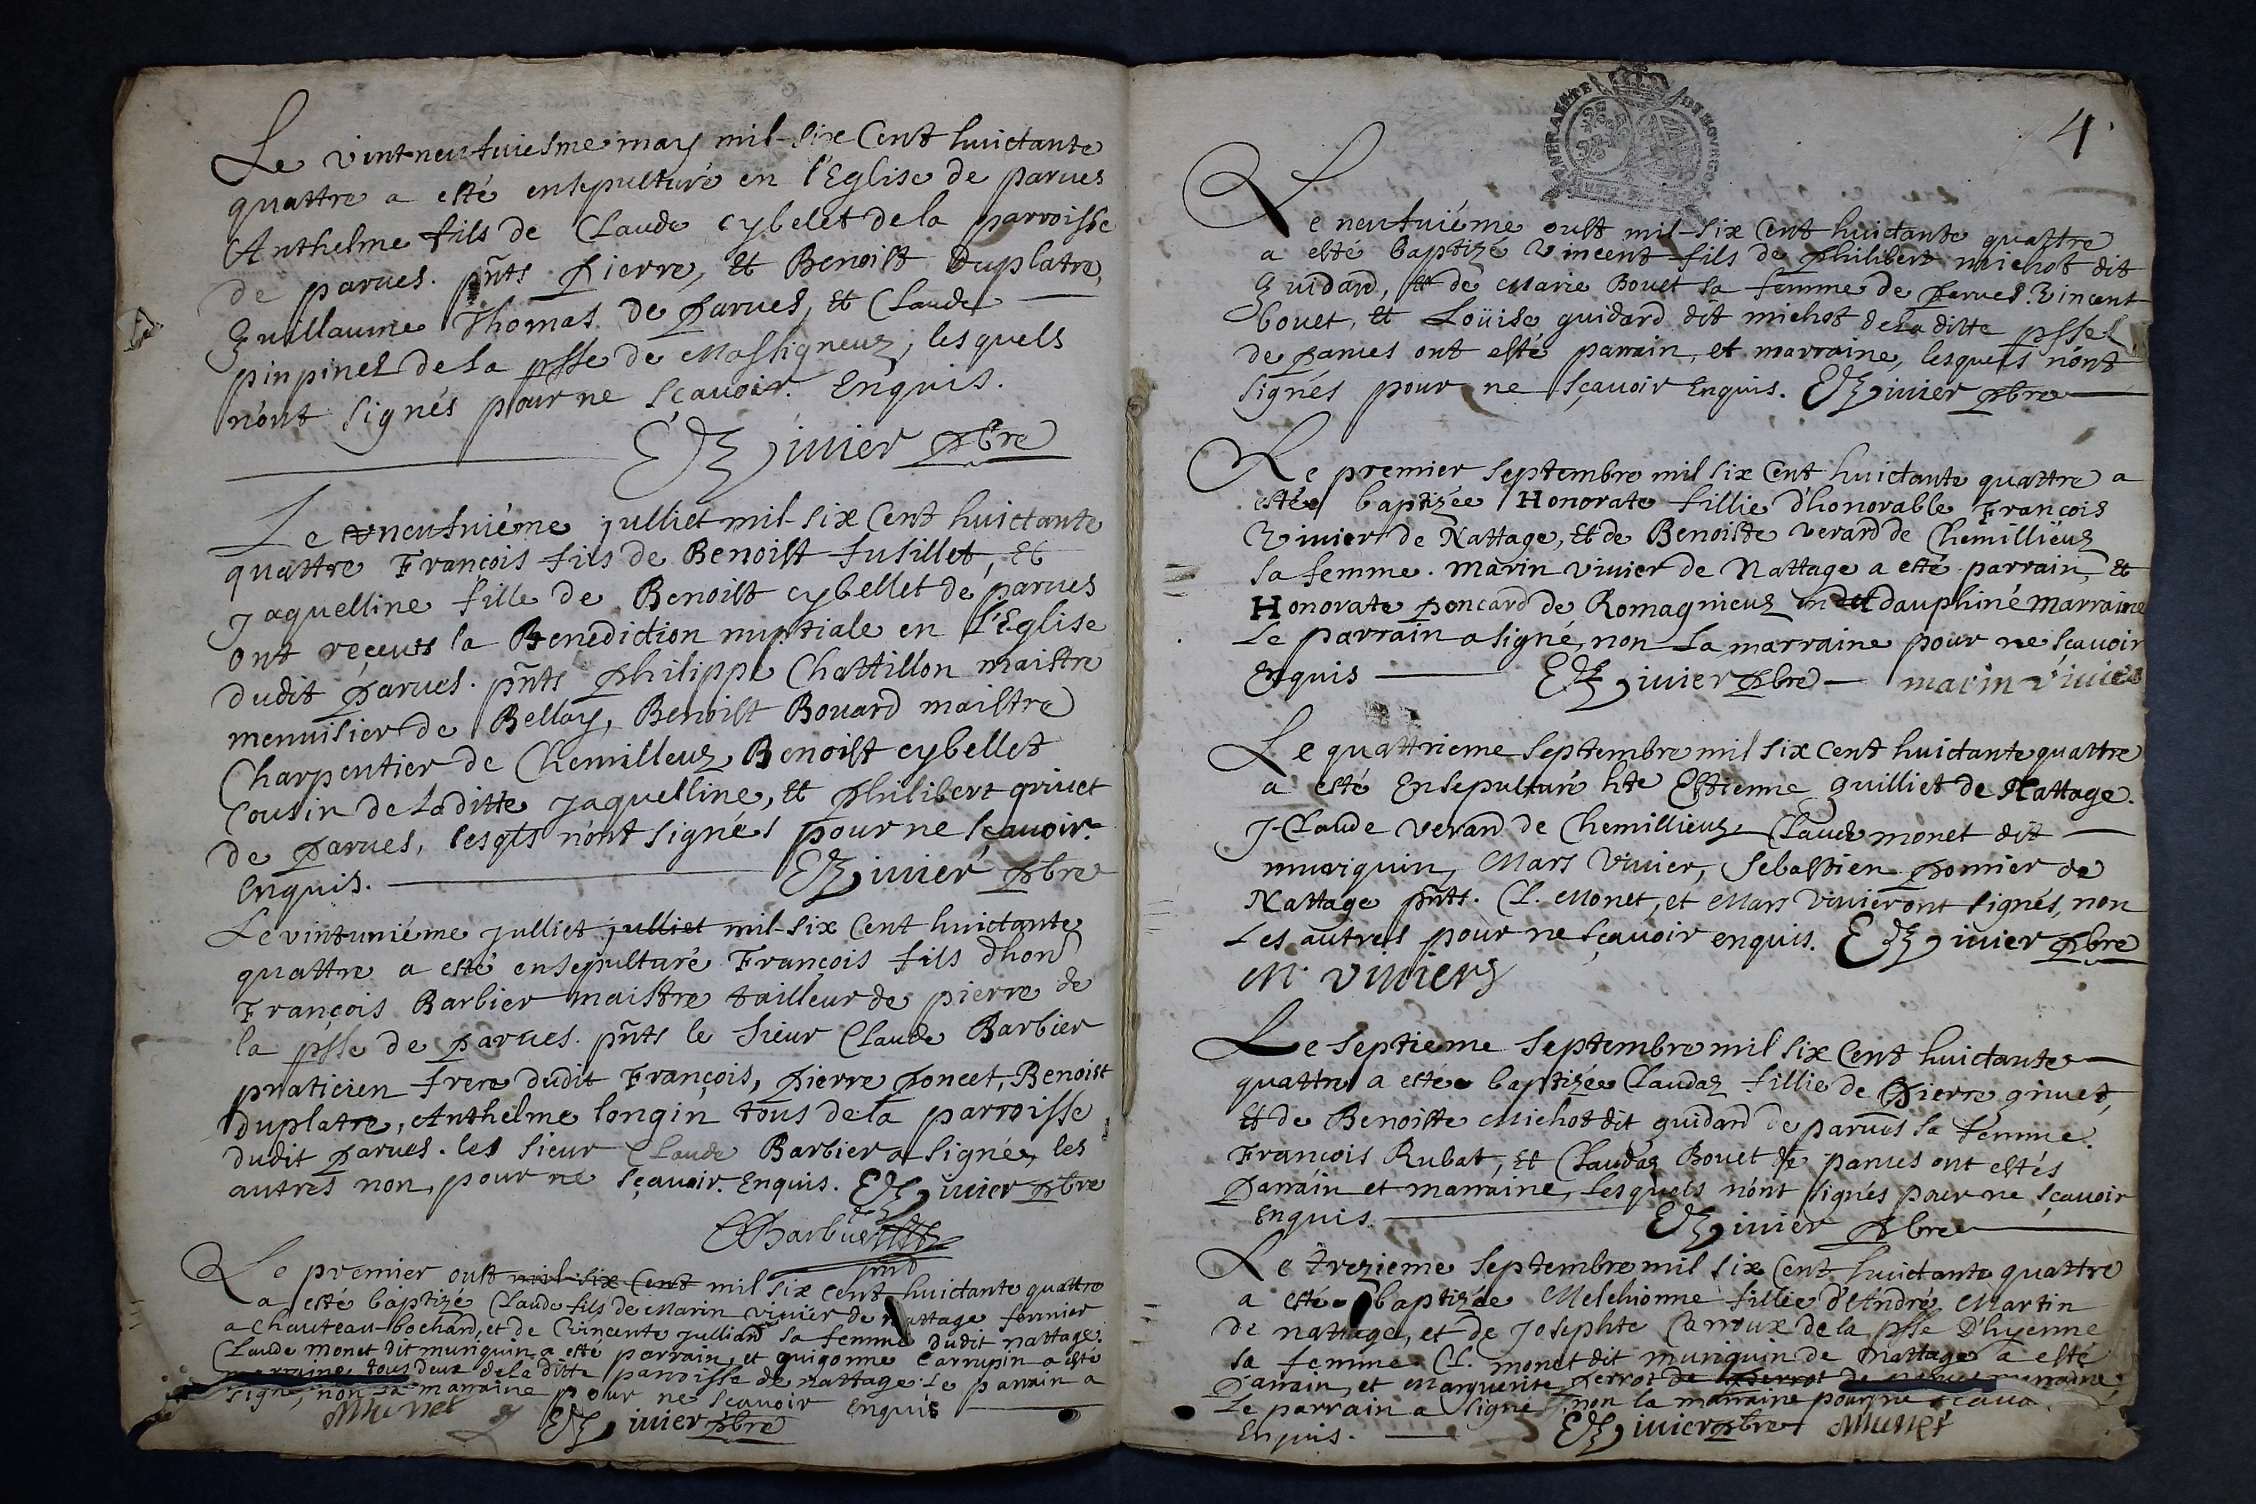 Le vintneufuiesme may mil-six Cent huictante
quattre a esté ensepulturé en l'Eglise de parues
Anthelme fils de Claude cybelet de la parroisse
de parues. pñts Pierre, et Benoist Duplatre,
Guillaume Thomas de Parues, et Claude
pinpinel de la psse de Massigneuz, lesquels
n'ont signés pour ne sçauoir. Enquis.
Viuier pbre
Le neufuiéme julliet mil-six Cent huictante
quattre François fils de Benoist fusillet, et
Jaquelline fille de Benoist cybellet de parues
ont reçeuts la Benediction nuptiale en l'Eglise
dudit Parues. pñts philippe Chattillon maistre
menuisier de Bellay, Benoist Bouard maistre
Charpentier de Chemilleuz, Benoist cybellet
Cousin de Laditte Jaquelline, et philibert griuet
de Parues, lesqls n'ont signés pour ne sçauoir.
Enquis. Viuier pbre
Le vintuniéme julliet julliet mil-six Cent huictante
quattre a esté ensepulturé François fils d'hon
François Barbier maistre tailleur de pierre de
la psse de Parues. pñts le sieur Claude Barbier
praticien frere dudit François, Pierre Poncet, Benoist
Duplatre, Anthelme longin tous de la parroisse
dudit Parues. les sieur Claude Barbier a signé, les
autres non, pour ne sçauoir. Enquis. Viuier pbre
CBarbier
Le premier oust mil-six Cent mil six cent huictante quattre
a esté baptizé Claude fils de Marin Viuier de nattage fermier
a Chauteau-bochard, et de Vincente Julliard sa femme dudit nattage.
Claude monet dit muriquin a esté parrain, et guigonne Carrupin a esté
marraine tous deux de la ditte parroisse de nattage. Le parrain a
signé, non la marraine pour ne sçauoir enquis
CMunet Viuier pbre
4.
Le neufuiéme oust mil-six Cent huictante quattre
a esté baptizé Vincent fils de Philibert michot dit
Guidard, et de Marie Bouet sa femme de Parues. Vincent
bouet, et Loüise guidard dit michot de la ditte psse
de Parues ont esté parrain, et marraine, lesquels n'ont
signés pour ne sçauoir Enquis. Viuier pbre
Le premier septembre mil six Cent huictante quattre a
estée baptizée Honorate fillie d'honorable François
Viuier de Nattage, et de Benoiste verard de Chemillieuz
sa femme. Marin viuier de Nattage a esté parrain, et
Honorate poncard de Romagnieuz en dauphiné Marraine
Le parrain a signé, non La marraine pour ne sçauoir
Enquis Viuier pbre marin viuier
Le quattrieme septembre mil six cent huictante quattre
a esté Ensepulturé hte Estienne guilliet de Nattage.
J-Claude verard de Chemillieuz Claude monet dit
muriquin, Mars Viuier, Sebastien pomier de
Nattage pñts. Cl. Monet, et Mars Viuier ont signés, non
Les autres pour ne sçauoir enquis. Viuier pbre
M. viuiers
Le septieme septembre mil six Cent huictante
quattre a estée baptizée Claudaz fillie de Pierre griuet,
et de Benoitte Michot dit guidard de parues sa femme.
François Rubat, et Claudaz Bouet de parues ont estés
Parrain et marraine, Lesquels n'ont signés pour ne sçauoir
Enquis. Viuier pbre
Le trezieme septembre mil six Cent huictante quattre
a estée baptizée Melchionne fillie d'André Martin
de nattage, et de Josephte Carroux de la psse D'hyenne
sa femme. Cl. monet dit muriquin de nattage a esté
Parrain, et Marguerite Perrot de marraine
Le parrain a signé, non la marraine pour ne
Enquis. Viuier pbre CMunet